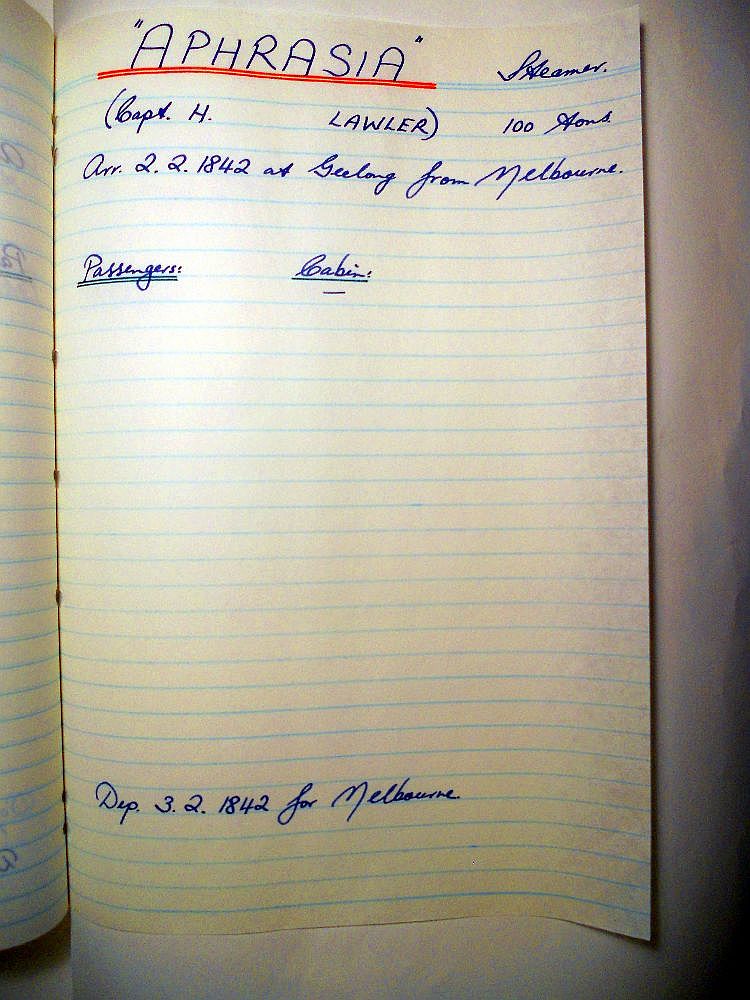 "APHRASIA" Steamer.
(Capt. H. LAWLER) 100 tons.
Arr. 2.2.1842 at Geelong from Melbourne.
Passengers: Cabin:
—
Dep. 3.2.1842 for Melbourne.